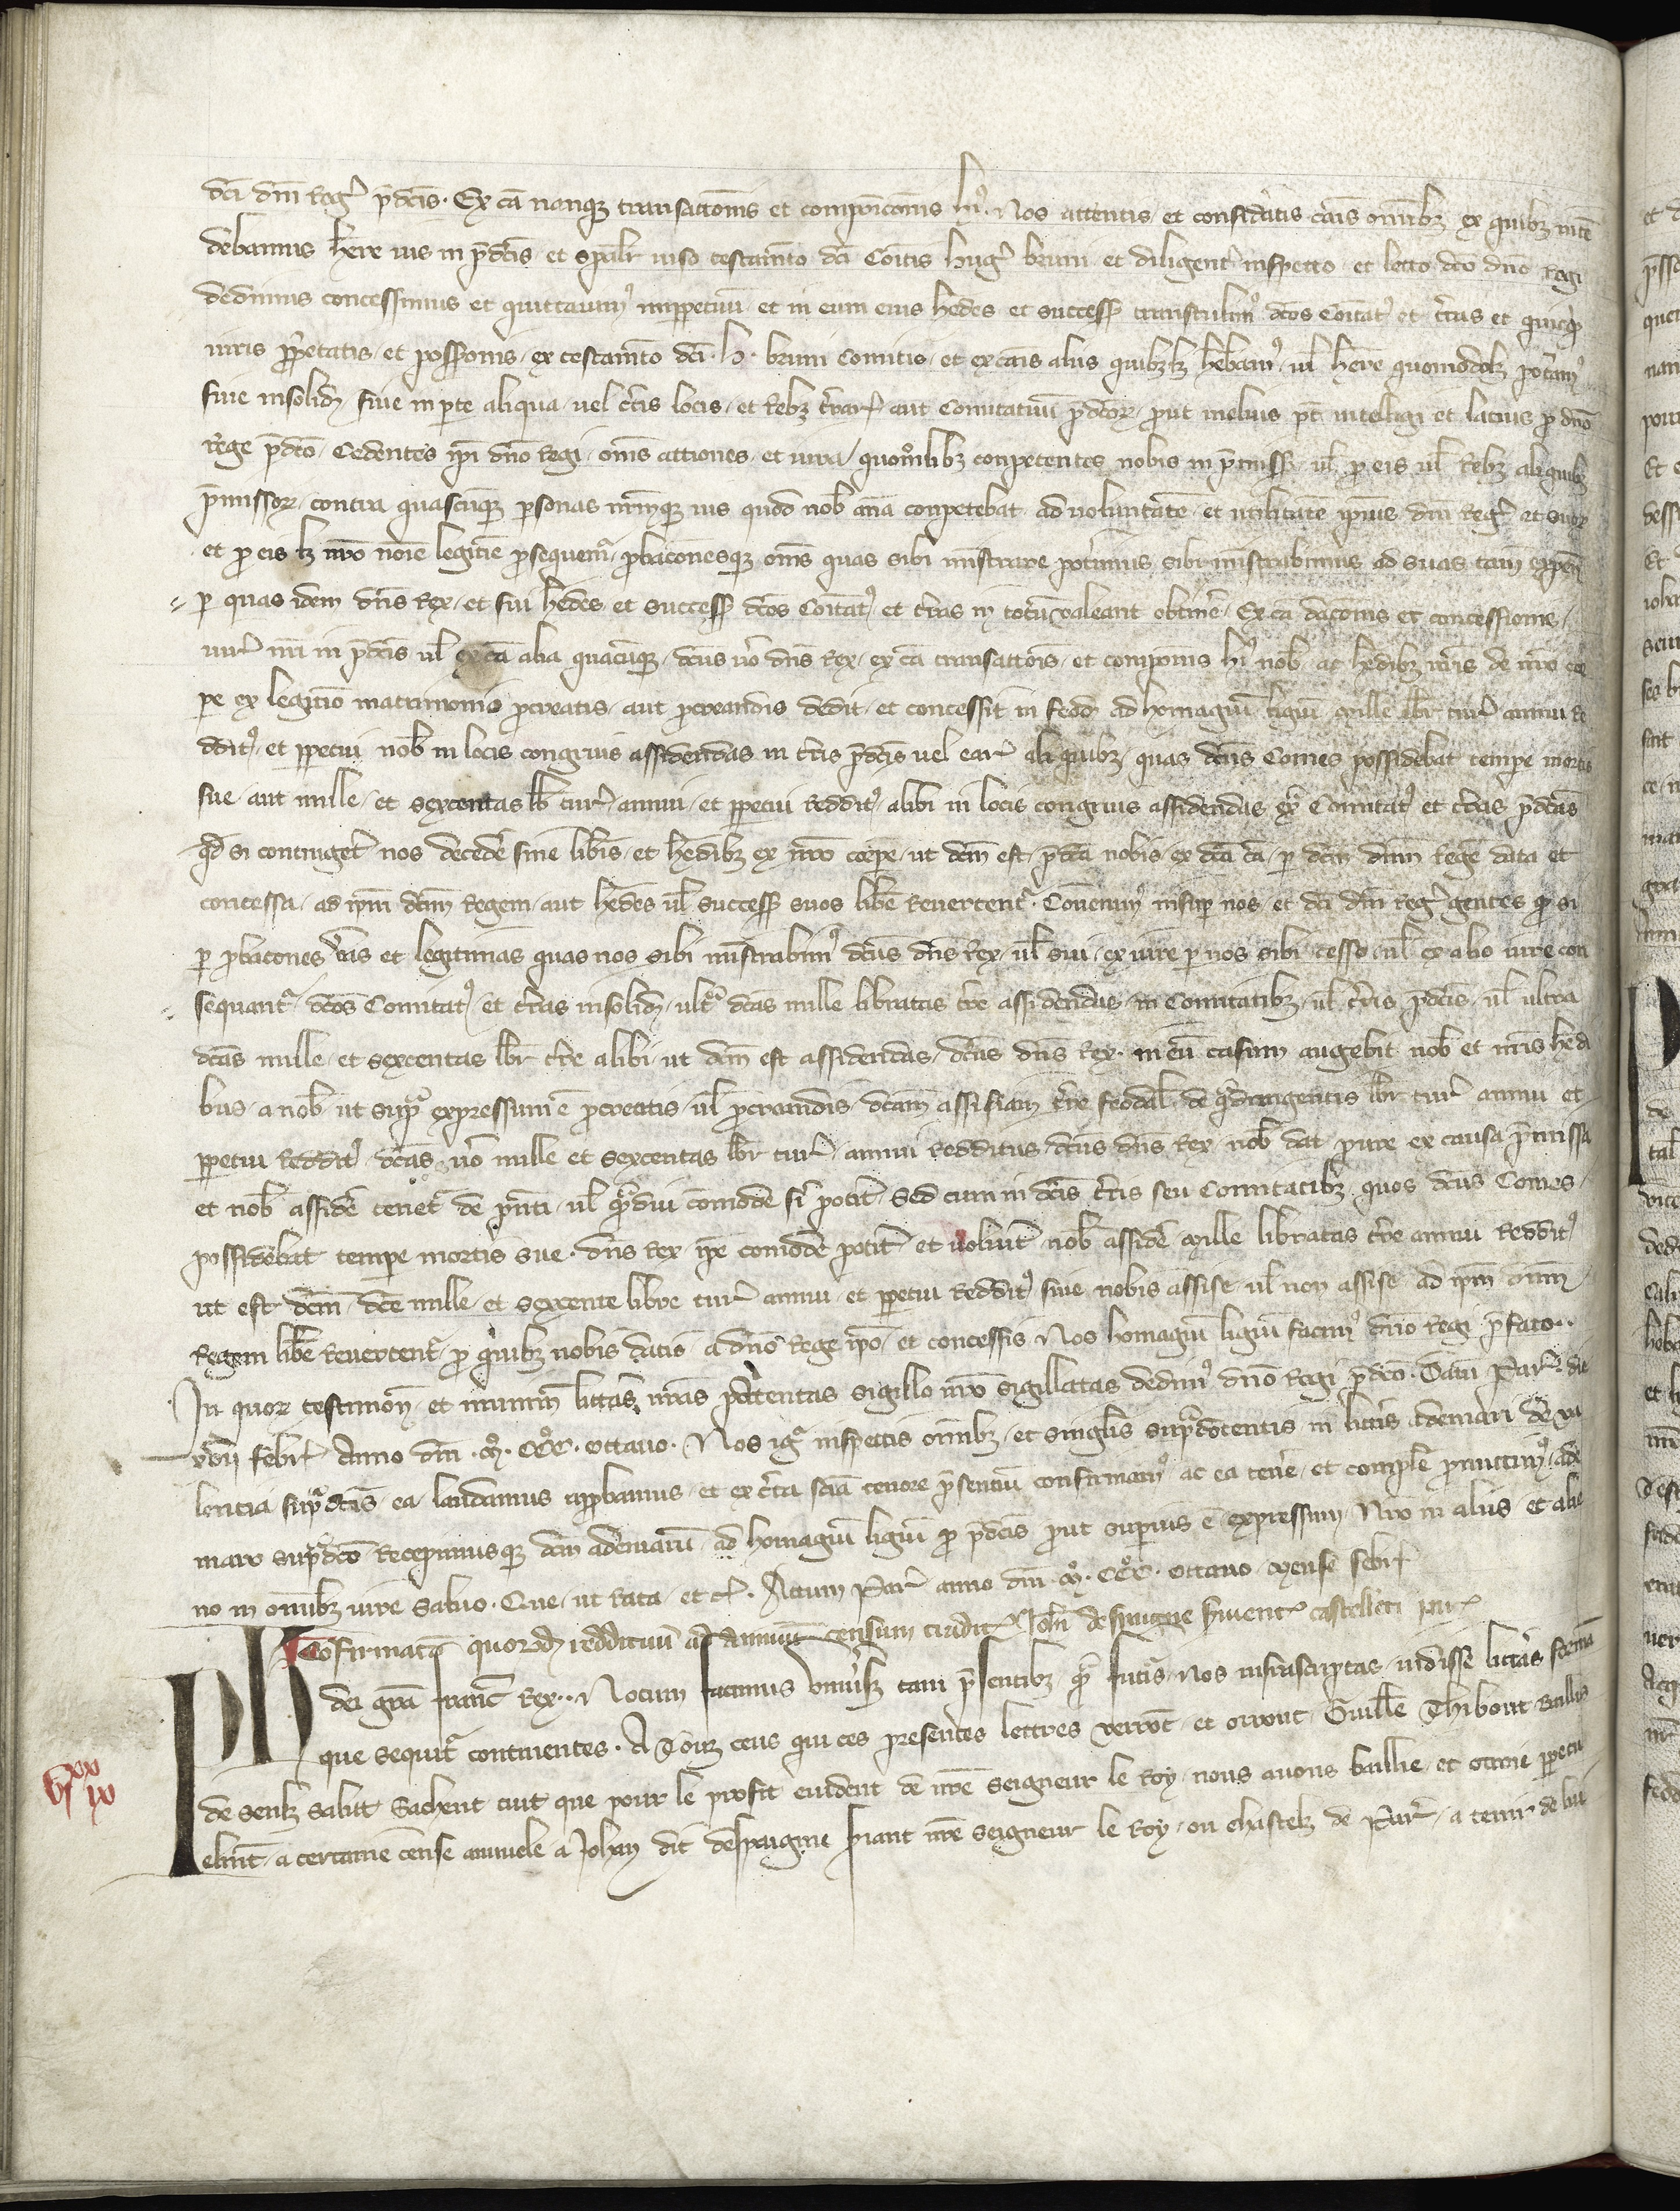 dc̄i dn̄i Reg̾ p̄dc̄is. Ex cā nanq̄ꝫ transactionis et composicionis hꝰ. Nos attentis et consid̾atis cāis om̄ibꝫ ex quibꝫ intē
debamus hēre ius in p̄dc̄is et spāl̾r uiso testam̄to dc̄i Cōitis hug̾ bruni et diligent̾ inspecto et lecto dc̄o dn̄o regi
dedimus concessimus et quittauimꝰ imꝑpetuū et in eum eius h̾edes et success̾ transtulimꝰ dc̄os Cōitatꝰ et t̾ras et quicqͥd
iuris ꝓp̾etatis et poss̾ionis ex testam̄to dc̄i .h. bruni Comitis et ex cāis aliis quibꝫlꝫ hēbamꝰ ul̾ hēre quomodolꝫ pot̾amꝰ
siue insolidꝫ siue in ꝑte aliqua uel c̾tis locis et Rebꝫ t̾rarꝫ aut Comitatuū p̄dc̄orꝫ ꝓut melius pt̄ intelligi et latius ꝓ dn̄o
rege p̄dc̄o Cedentes ip̄i dn̄o Regi om̄s actiones et iura quom̄libꝫ conpetentes nobis in p̄miss̾ ul̾ ꝑ eis ul̾ Rebꝫ aliquibꝫ
p̄missorꝫ contra quascūqꝫ ꝑsonas nr̄mqꝫ ius quod nob̾ conpetebat ad uoluntatē et utilitatē ip̄ius dn̄i Reg̾ et suorꝫ
et ꝓ eis lꝫ nr̄o noīe legitīe ꝓsequem̾ ꝓbacōnesqꝫ om̄s quas sibi mīstrare pot̾imus sibi mīstrabimus ad suas tam̄ expen̄
ꝑ quas idem dn̄s Rex et sui h̾edes et success̾ dc̄os Cōitatꝰ et t̾ras in totū ualeant obtin̾e Ex cā dacōnis et concessionis
iur̾ nr̄i in p̄dc̄is ul̾ ex cā alia quacūqꝫ dc̄us u̾o dn̄s Rex ex cā transactōis et componis hꝰ nob̾ ac h̾edibꝫ nr̄is de nr̄o cor
ꝑe ex legitīo matrimonio ꝓcreatis aut ꝓcreandis dedit et concessit in feodꝫ ad homagiū ligiū Mille lib̾r tur̾ annui Re
dditꝰ et ꝑpetui nob̾ in locis congruis assidendas in t̾ris p̄dc̄is uel earꝫ aliquibꝫ quas dc̄us Comes possidebat temꝑe mortis
sue aut mille et sexcentas lib̾ tur̾ annui et ꝑpetui Redditꝰ alibi in locis congruis assidendas ext̾ Comitatꝰ et t̾ras p̄dc̄as
qd̾ si contingeret nos deced̾e sine lib̾is et h̾edibꝫ ex nr̄o corꝑe ut dc̄m est p̄dc̄a nobis ex dc̄a cā ꝑ dc̄m dn̄m Regē data et
concessa ad ip̄m dn̄m Regem aut h̾edes ul̾ success̾ suos lib̾e Reuertent̾ Conuenimꝰ insuꝑ nos et dc̄i dn̄i Reg̾ gentes qͥ si
ꝑ ꝓbacōnes u̾as et legitimas quas nos sibi mīstrabimꝰ dc̄us dn̄s Rex ul̾ sui ex iure ꝑ nos sibi cesso ul̾ ex alio iure con
sequant̾ dc̄os Comitatꝰ et t̾ras insolidꝫ ult̾ᵃ dc̄as mille libratas t̾re assidendas in Comitatibꝫ ul̾ t̾ris p̄dc̄is ul̾ ultra
dc̄as mille et sexcentas lib̾r t̾re alibi ut dc̄m est assidendas dc̄us dn̄s Rex in eū casum augebit nob̾ et nr̄is hēdi
bus a nob̾ ut supᵃ expressum ē ꝓcreatis ul̾ ꝓcreandis dc̄am assisiam t̾re feodal̾ de qᵃdringentis lib̾r tur̾ annui et
ꝑpetui Redditꝰ dc̄as u̾o mille et sexcentas lib̾r tur̾ annui redditus dc̄us dn̄s Rex nob̾ dat pure ex causa p̄missa
et nob̾ assid̾e tenet̾ de p̄nti ul̾ qᵃmdiu comode fi̾ pot̾it Sed cum in dc̄is t̾ris seu Comitatibꝫ quos dc̄us Comes
possidebat temꝑe mortis sue dn̄s Rex ip̄e comode pot̾it et uoluit nob̾ assid̾e Mille libratas t̾re annui Redditꝰ
ut est dc̄m dc̄e mille et sexcente libre tur̾ annui et ꝑpetui Redditꝰ siue nobis assise ul̾ non assise ad ip̄m dn̄m
Regem lib̾e Reuertent̾ ꝓ quibꝫ nobis datis a dn̄o Rege ip̄o et concessis Nos homagiū ligiū facimꝰ dn̄o regi p̄fato..
In quorꝫ testimon̄ et munim̄ litt̾as nr̄as patentas sigillo nr̄o sigillatas dedimꝰ dn̄o Regi p̄dc̄o. Datū Par̾. die
xvij febr̾ Anno dn̄i .Mͦ. CCCͦ. octauo. Nos igᵗ inspectis om̄ibꝫ et singl̾is supᵃdc̄tentis in litt̾is Ademari de va
lencia supᵃdc̄is ea laudamus approbamus et ex c̾ta sciā tenore p̄sentiū confirmamꝰ ac ea ten̾e et compl̾e promittimꝰ ade
maro supᵃdc̄o Recepimusqꝫ dc̄m ademarū ad homagiū ligiū ꝓ p̄dc̄is ꝓut suꝑius ē expressum Nr̄o in aliis et alie
no in om̄ibꝫ iure saluo. Que ut rata et c̾. Actum Par̾ anno dn̄i .Mͦ. CCCͦ. octauo Mense febr̾
Cōfirmatō quorꝫdꝫ reddituū ad annuū censum tradit̾ Joh̾i despaigne seruient̾ castelleti par̾
Ph dei grā franc̄ Rex.. Notum facimus vniu̾sis tam p̄sentibꝫ qᵃm fut̾is Nos infrascriptas uidisse litt̾as formā
que sequit̾ continentes. A Touz ceus qui ces presentes lettres verrōt et orront Guill̾e Thibout Baillis
de senlꝫ salut Sachent tuit que pour le profit euident de nr̄e seigneur le Roy nous auons baillie et otroie ꝑpetu
elmt̄ a certaine cense annuele a Johan dit despaigne seriant nr̄e seigneur le Roy ou chastelꝫ de Par̾ a tenir de lui
vjˣˣ ix